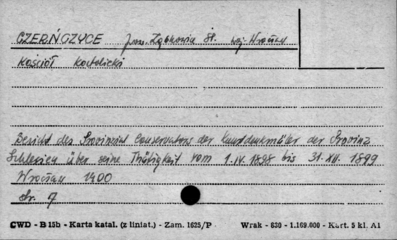 CZERŃCZYCE pow. Ząbkowice Śl. woj. Wrocław
Kościół Katolicki
Bericht des Provinzial Conservators der Kunstdenkmäler der Provinz
Schlesien über seine Thätigkeit vom 1.IV.1898 bis 31.XII.1899
Wrocław 1900
Str. 9
CWD - B 15b - Karta katal. (z liniat.) - Zam. 1625/P Wrak - 630 - 1.169.000 - Kart. 5 kl. A1